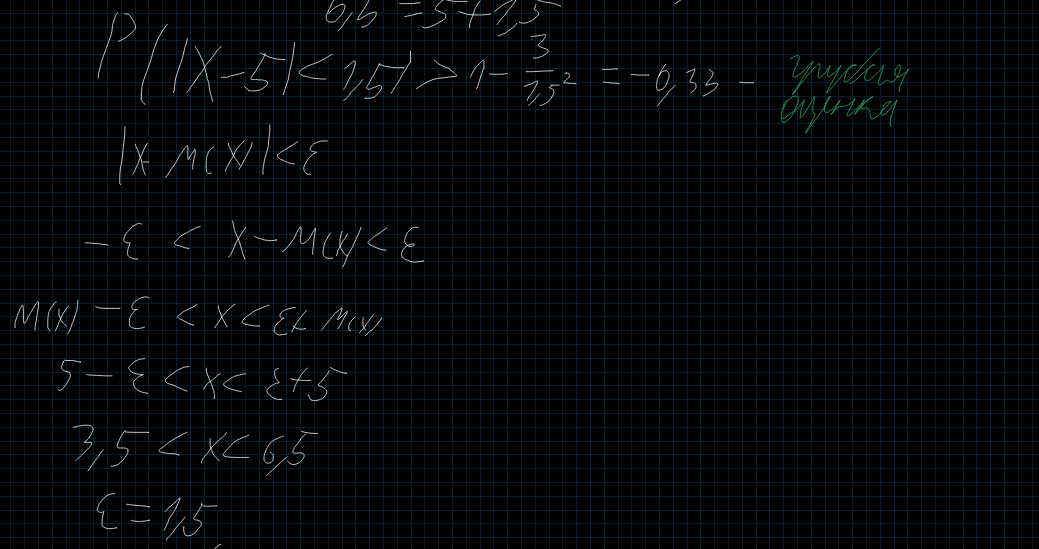 6,5 = 5 + 1,5
P(|X - 5| < 1,5) > 1 - 3/1,5² = -0,33 - грубая
оценка
|X - M(X)| < ε
-ε < X - M(X) < ε
M(X) - ε < X < ε + M(X)
5 - ε < X < ε + 5
3,5 < X < 6,5
ε = 1,5